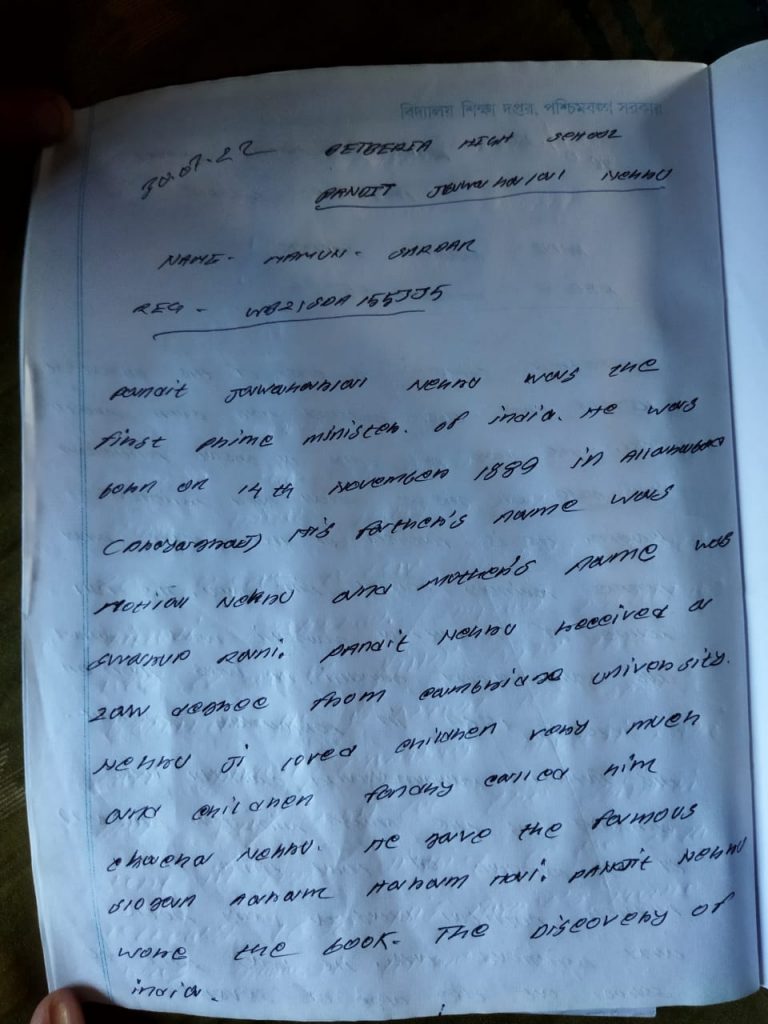 বিদ্যালয় শিক্ষা দপ্তর, পশ্চিমবঙ্গ সরকার
30.07.22 BETBERIA HIGH SCHOOL
PANDIT Jawaharlal Nehru
NAME - MAMUN - SARDAR
REG - WB21SDA155335
Pandit Jawaharlal Nehru was the
first prime minister. of india. He was
born on 14 th November 1889 in Allahabad
(Prayagraj) His father's name was
Motilal Nehru and mother's name was
Swarup Rani. Pandit Nehru received a
Law degree from cambridge university.
Nehru Ji loved children very much
and children fondly called him
chacha Nehru. He gave the famous
slogan Aaram Haram Hai. Pandit Nehru
wore the book. The Discovery of
india.